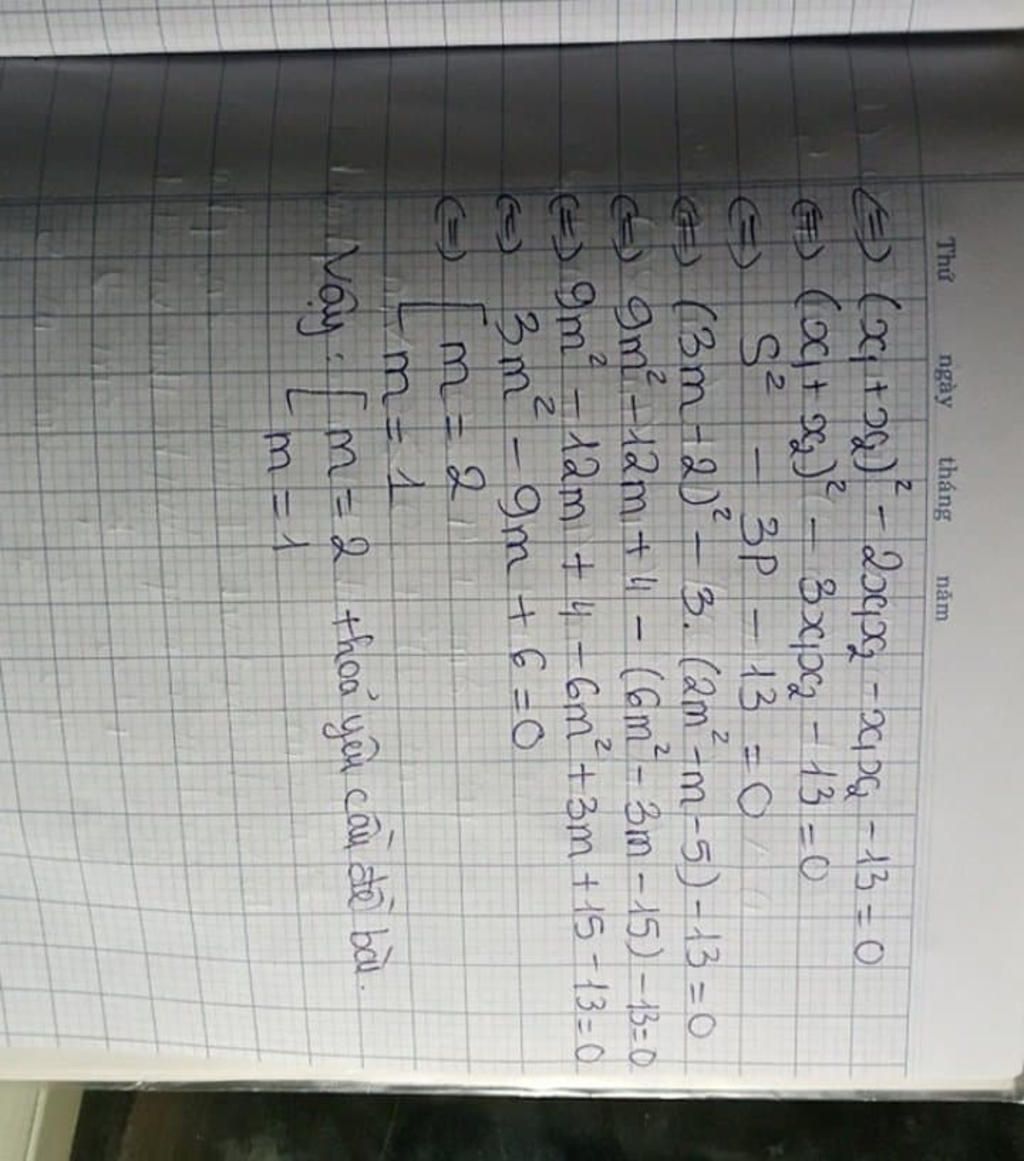 Thứ ngày tháng năm
<=> (x₁ + x₂)² - 2x₁x₂ - x₁x₂ - 13 = 0
<=> (x₁ + x₂)² - 3x₁x₂ - 13 = 0
<=> S² - 3P - 13 = 0
<=> (3m - 2)² - 3. (2m² - m - 5) - 13 = 0
<=> 9m² - 12m + 4 - (6m² - 3m - 15) - 13 = 0
<=> 9m² - 12m + 4 - 6m² + 3m + 15 - 13 = 0
<=> 3m² - 9m + 6 = 0
<=> [ m = 2
m = 1
Vậy : [ m = 2 thoả yêu cầu đề bài.
m = 1